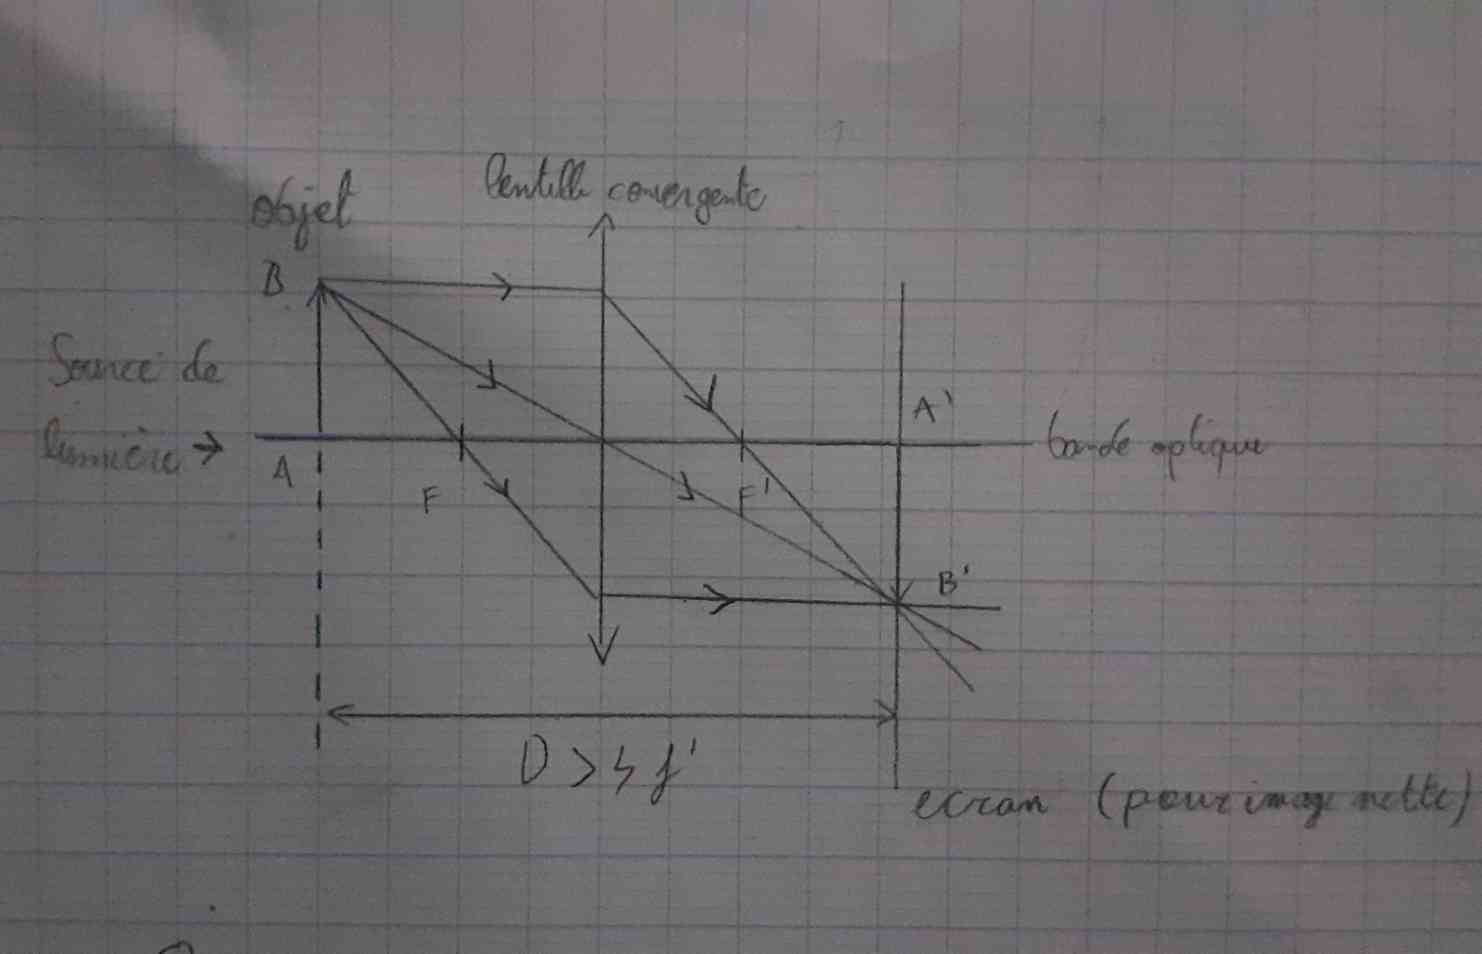 objet
lentille convergente
B
Source de
lumière →
A'
bande optique
A
F
F'
B'
D > 4 f'
ecran (pour image nette)